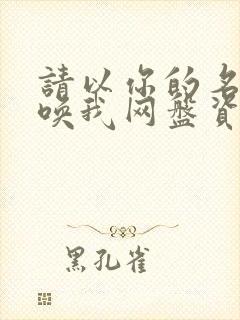 請以你的名
唤我网盘資
黑孔雀